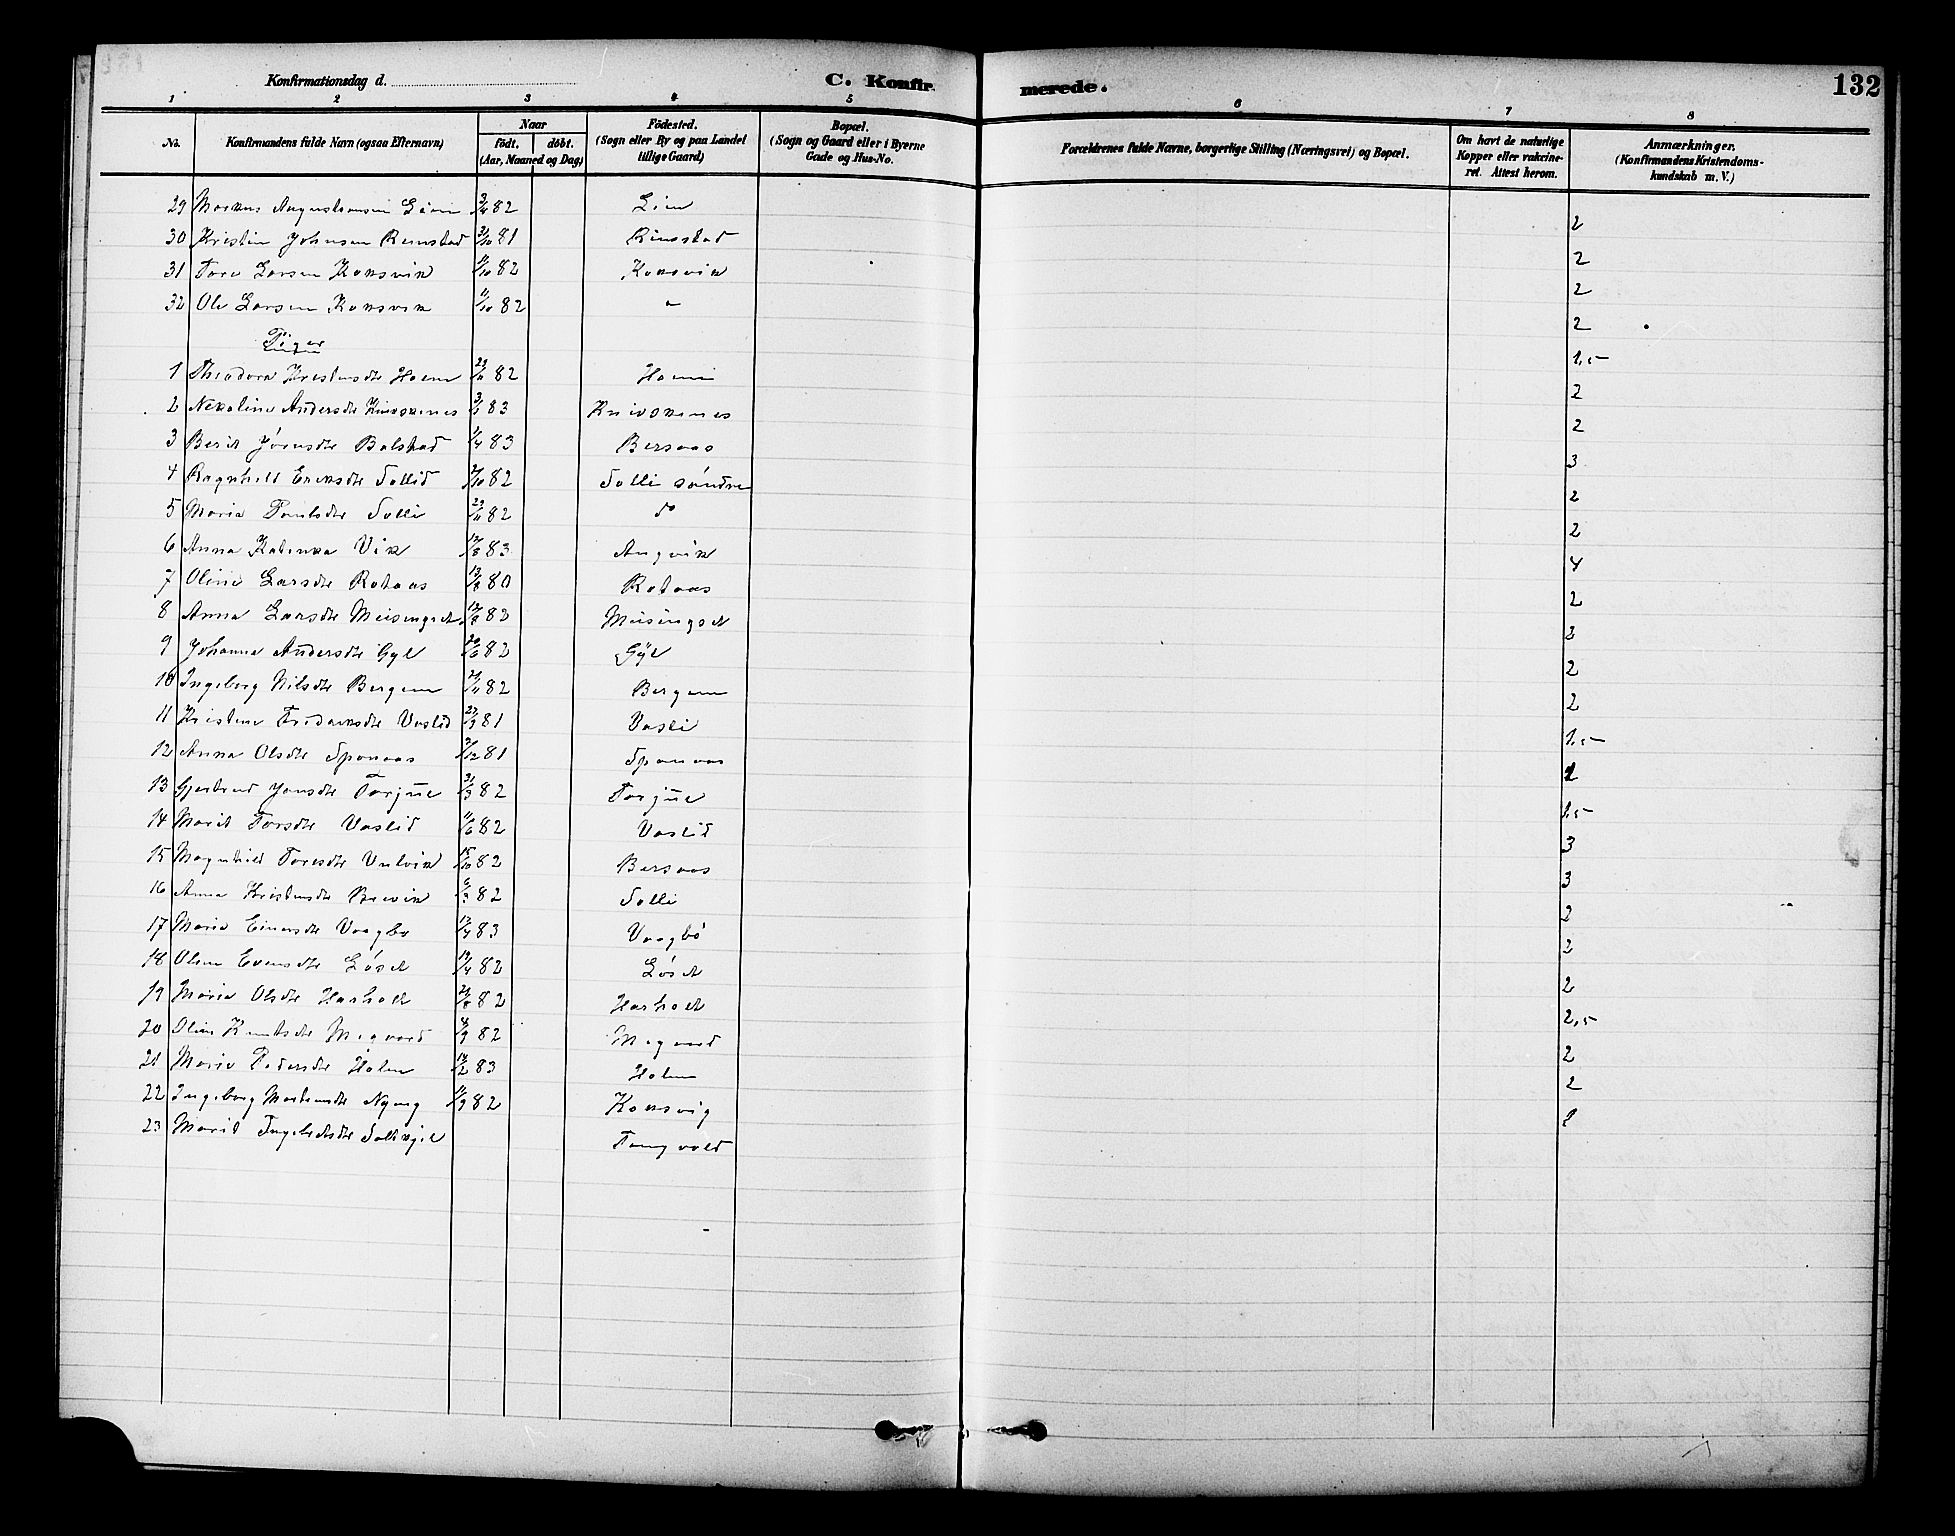 Konfirmationsdag d.
C. Konfirmerede.
132
1 2 3 4 5 6 7 8
No. Konfirmandens fulde Navn (ogsaa Efternavn) Naar födt. döbt. (Aar, Maaned og Dag) Födested. (Sogn eller By og paa Landet tillige Gaard) Bopæl. (Sogn og Gaard eller i Byerne Gade og Hus-No. Forældrenes fulde Navne, borgerlige Stilling (Næringsvei) og Bopæl. Om havt de naturlige Kopper eller vaccineret. Attest herom. Anmærkninger. (Konfirmandens Kristendomskundskab m. V.)
29 Markus 82 2
30 Kristin Johnsen Rimstad 81 Rimstad 2
31 Tore Larsen Koksvik 82 Koksvik 2
32 Ole Larsen Koksvik 11/10 82 " 2
Piger
1 Theodora Kristensdtr Hoem 29/11 82 Hoem 1,5
2 Nekoline Andersdtr Knivskenes 83 Knivskenes 2
3 Berit Jörnsdtr Bolstad 1/4 83 Bersaas 2
4 Ragnhild Eriksdtr Sollid 82 Solli söndre 3
5 Maria Solli 29/11 82 do 2
6 Anna Katinka Vik 83 Angvik 2
7 Oline Larsdtr Rotaas 80 Rotaas 4
8 Anna Larsdtr Meisingset 82 Meisingset 2
9 Johanna Andersdtr Gyl 82 Gÿl 2
10 Ingeborg Nilsdtr Bergem 82 Bergem 2
11 Kristine Fredriksdtr Vaslid 81 Vasli 2
12 Anna Olsdtr Sponaas 81 Sponaas 1,5
13 Gjertrud Jonsdtr Torjül 31/3 82 Torjül
14 Marit Torsdtr Vaslid 11/6 82 Vaslid 1,5
15 Magnhild Toresdtr Ulvik 15/10 82 Bersaas 3
16 Anna Kristensdtr Brevik 6/3 82 Solli 3
17 Maria Einarsdtr Vaagbø 83 Vaagbö 2
18 Olina Evensdtr Löset 19/4 82 Löset 2
19 Maria Olsdtr Harholt 82 Harholt 2
20 Oline Knutsdtr Megaard 82 Megaard 2,5
21 Marie Pedersdtr Holm 83 Holm 2
22 Ingeborg 11/9 82 Koksvig 2
23 Marit Tingvold